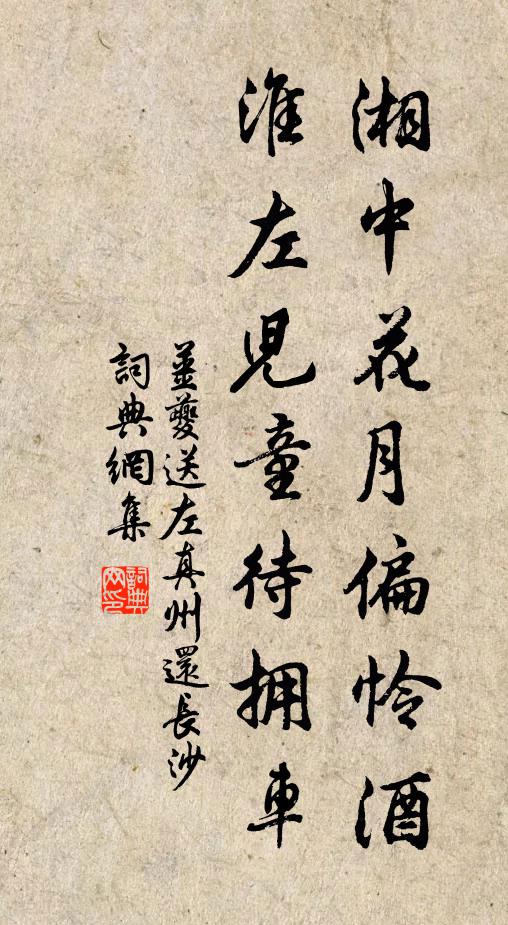 湘中花月偏怜酒
淮左児童待拥車
姜夔送左真州還長沙
詞典網集
詞典网印